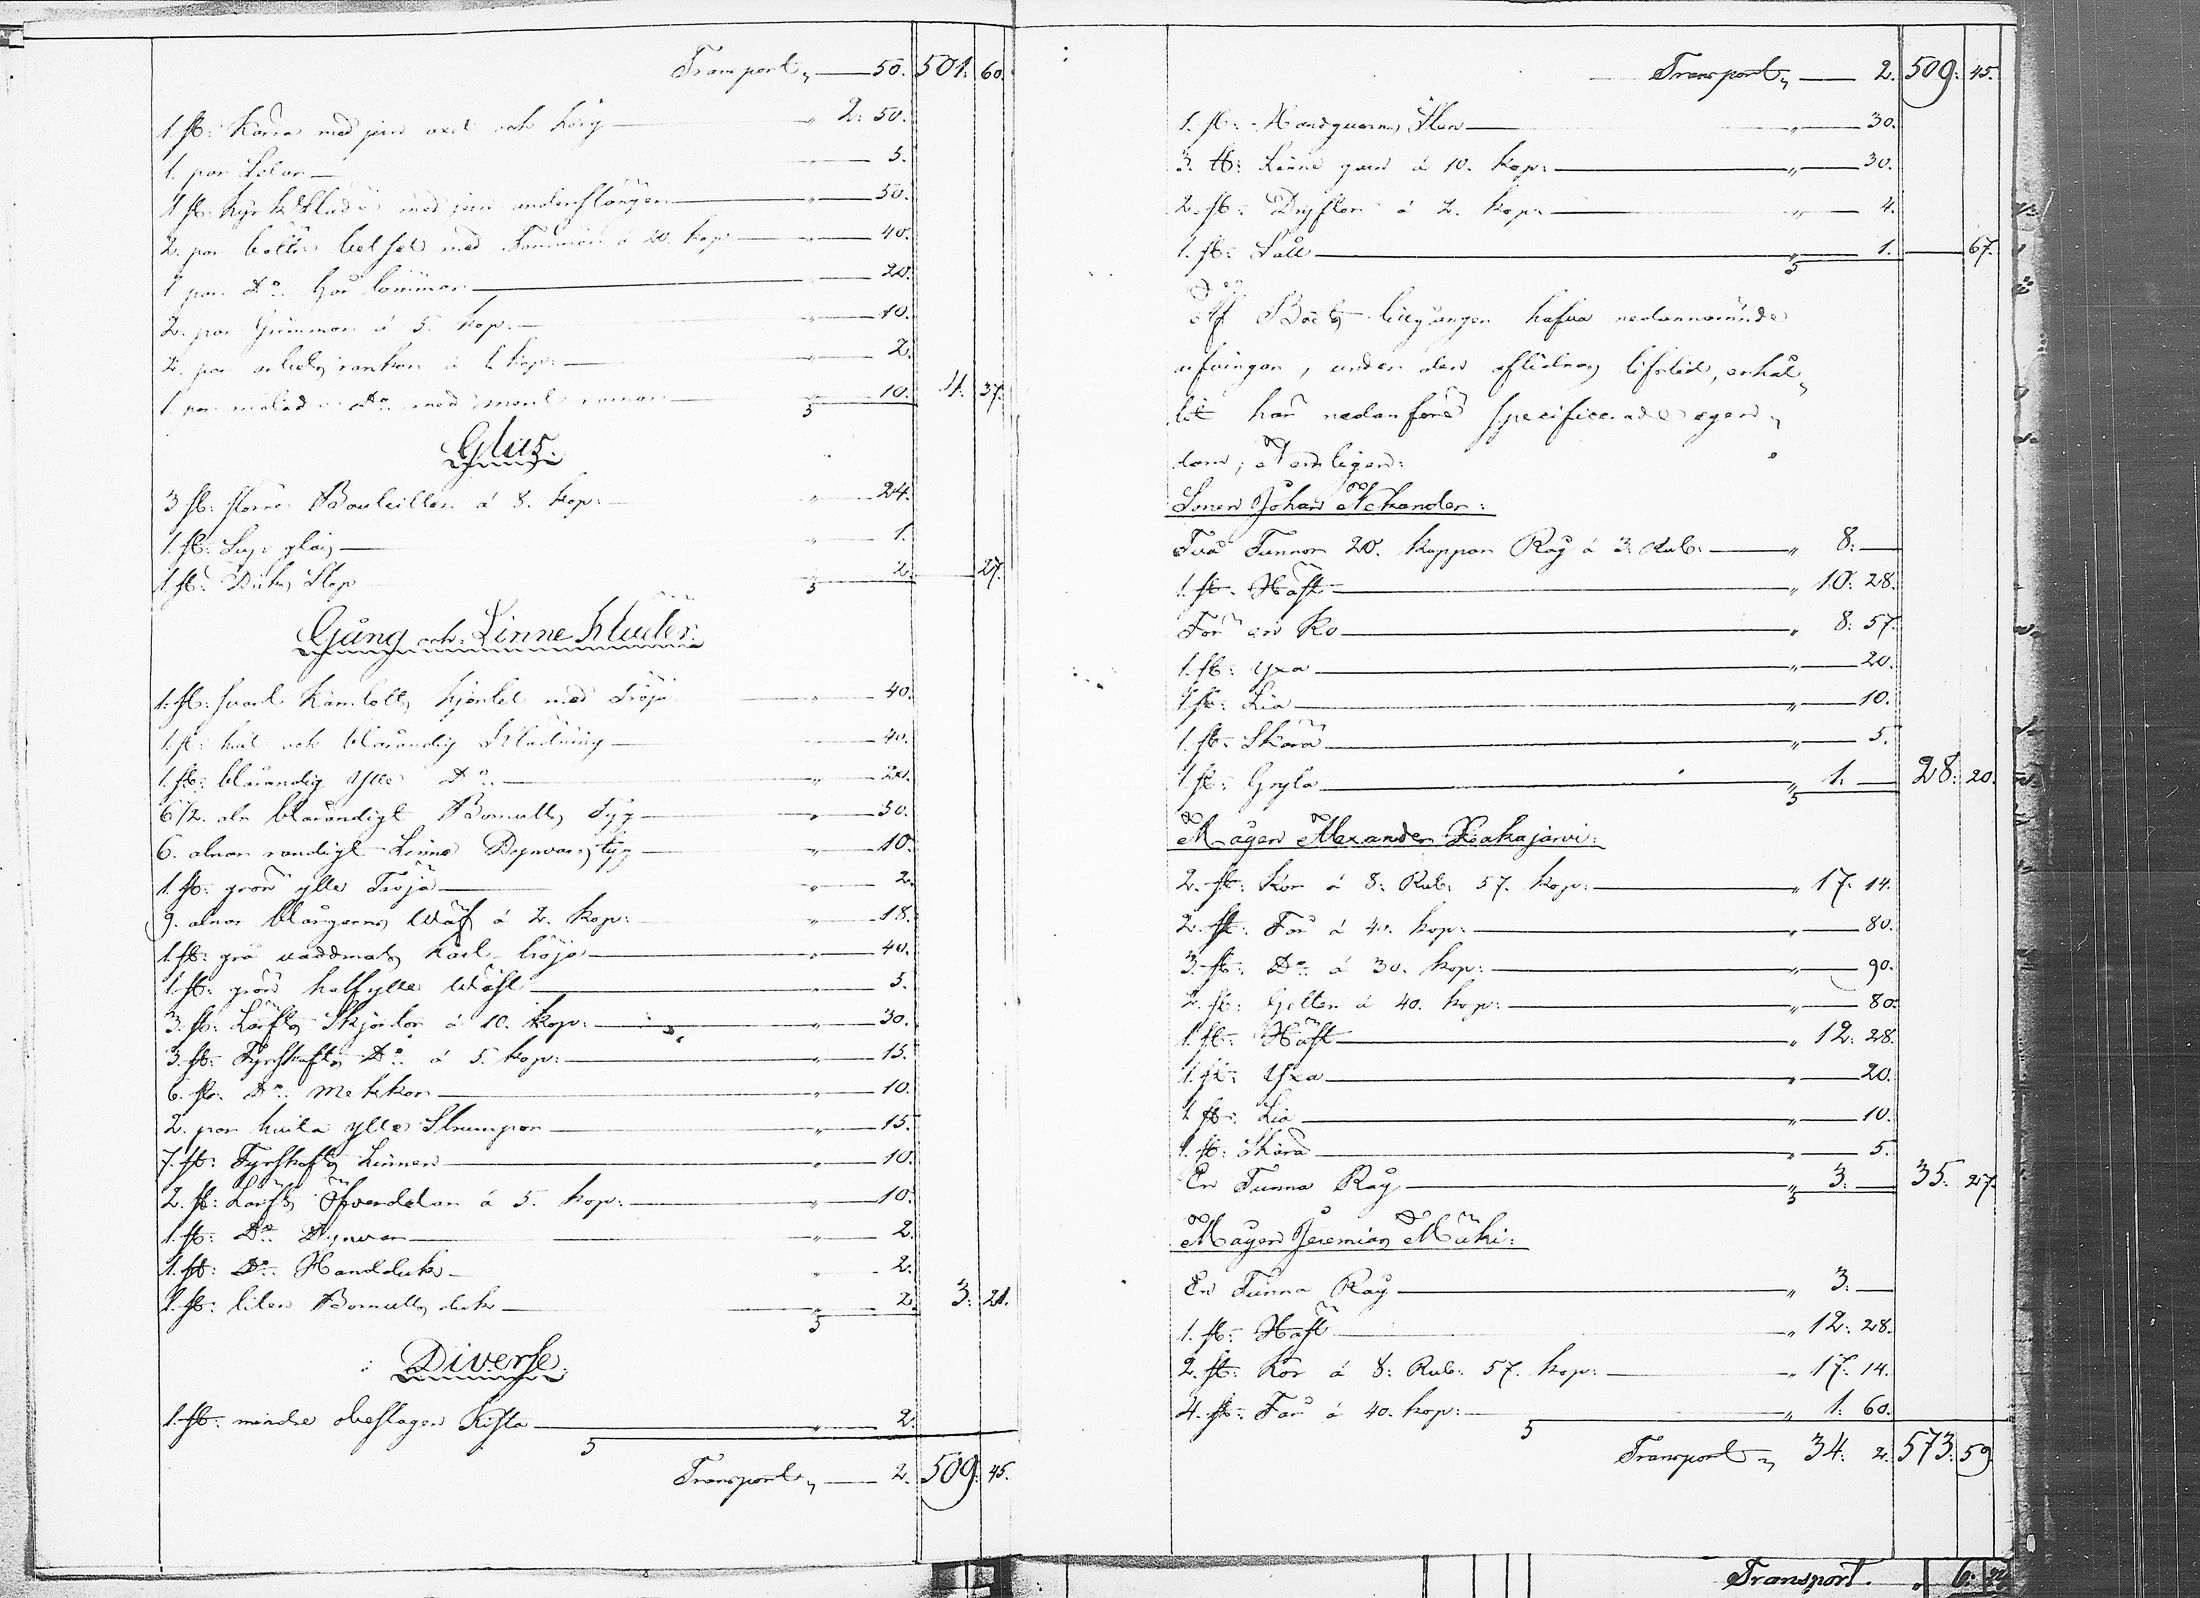 Transport „ — 50. 501. 60.
1. st: Kärra med jern axel och korg — „ 2. 50.
1. par Selar — „ — 5.
1 st: kyrk Släde med jern under — „ — 50.
2. par betsel med Tömmar á 20. kop: — „ — 40.
1 par D:o Hår tömmar — „ — 20.
2. par Grimmor á 5. kop: — „ — 10.
2. par arbets rankor á 1 kop: — „ — 2.
1 par målad D:o med — „ — 10. 4. 37.
Glas.
3 st: större Bouteiller á 8. kop: — „ — 24.
1. st: Sup glas — „ — 1.
1 st: Dricks Stop „ — 2. — 27.
Gång och Linne kläder.
1. st: svart Kamlotts kjortel med Tröja — „ — 40.
1. st: hvit och blårandig Klädning — „ — 40.
1. st: blårandig Ylle D:o — „ — 20.
6 1/2. aln blårandigt Bomulls Tyg — „ — 30.
6. alnar randigt Linne Dynvars tyg — „ — 10.
1. st: grön ylle Tröja — „ — 2.
9. alnar blångarns Wäf á 2. kop: „ — 18.
1. st: grå vadmals karl tröja — „ — 40.
1. st: grön halfylle Wäst — „ — 5.
3. st: Lärfts Skjortor á 10. kop: — „ — 30.
3. st: Fyrskafts D:o á 5. kop: — „ — 15.
6. st: D:o Mekkor — „ — 10.
2. par hvita ylle Strumpor — „ — 15.
7. st: Fyrskafts Linnen — „ — 10.
2. st: Lärfts Öfverdelar á 5. kop: — „ — 10.
1. st: D:o Dynvar — „ — 2.
1. st: D:o Handduk — „ — 2.
1. st: liten Bomulls duk — „ — 2. 3. 21.
Diverse.
1. st: mindre obeslagen Kista — „ — 2.
Transport „ — 2. 509. 45.
Transport „ — 2. 509. 45.
1. st: Handqvarns Sten — „ — 30.
3. ℔: Linne garn á 10. kop: — „ — 30.
2. st: Dryftor á 2. kop: — „ — 4.
1. st: Såll — „ — 1. — 67.
Af Boets tillgångar hafva nedannämnde
arfvingar, under den aflidnas lifstid, erhål-
lit här nedanföre specificerade egen-
dom, Nemligen:
Sonen Johan Nekander:
Två Tunnor 20. kappar Råg á 3. Rub: — „ 8. —
1. st: Häst — „ 10. 28.
För en Ko — „ 8. 57.
1. st: Yxa — „ — 20.
1 st: Lia — „ — 10.
1. st: Skära — „ — 5.
1 st: Gryta — „ 1. — 28. 20.
Mågen Alexander Kakajärvi:
2. st: Kor á 8: Rub: 57. kop: — „ 17. 14.
2. st: Får á 40. kop: — „ — 80.
3. st: D:o á 30. kop: — „ — 90.
2. st: Getter á 40. kop: — „ — 80.
1. st: Häst — „ 12. 28.
1. st: Yxa — „ — 20.
1 st: Lia — „ — 10.
1. st: Skära — „ — 5.
En Tunna Råg — „ 3. — 35. 27.
Mågen Jeremias Mäki:
En Tunna Råg — „ 3. —
1. st: Häst — „ 12. 28.
2. st: Kor á 8: Rub: 57. kop: — „ 17. 14.
4. st: Får á 40. kop: — „ 1. 60.
Transport „ 34. 2. 573. 59.
Transport. „ 6.